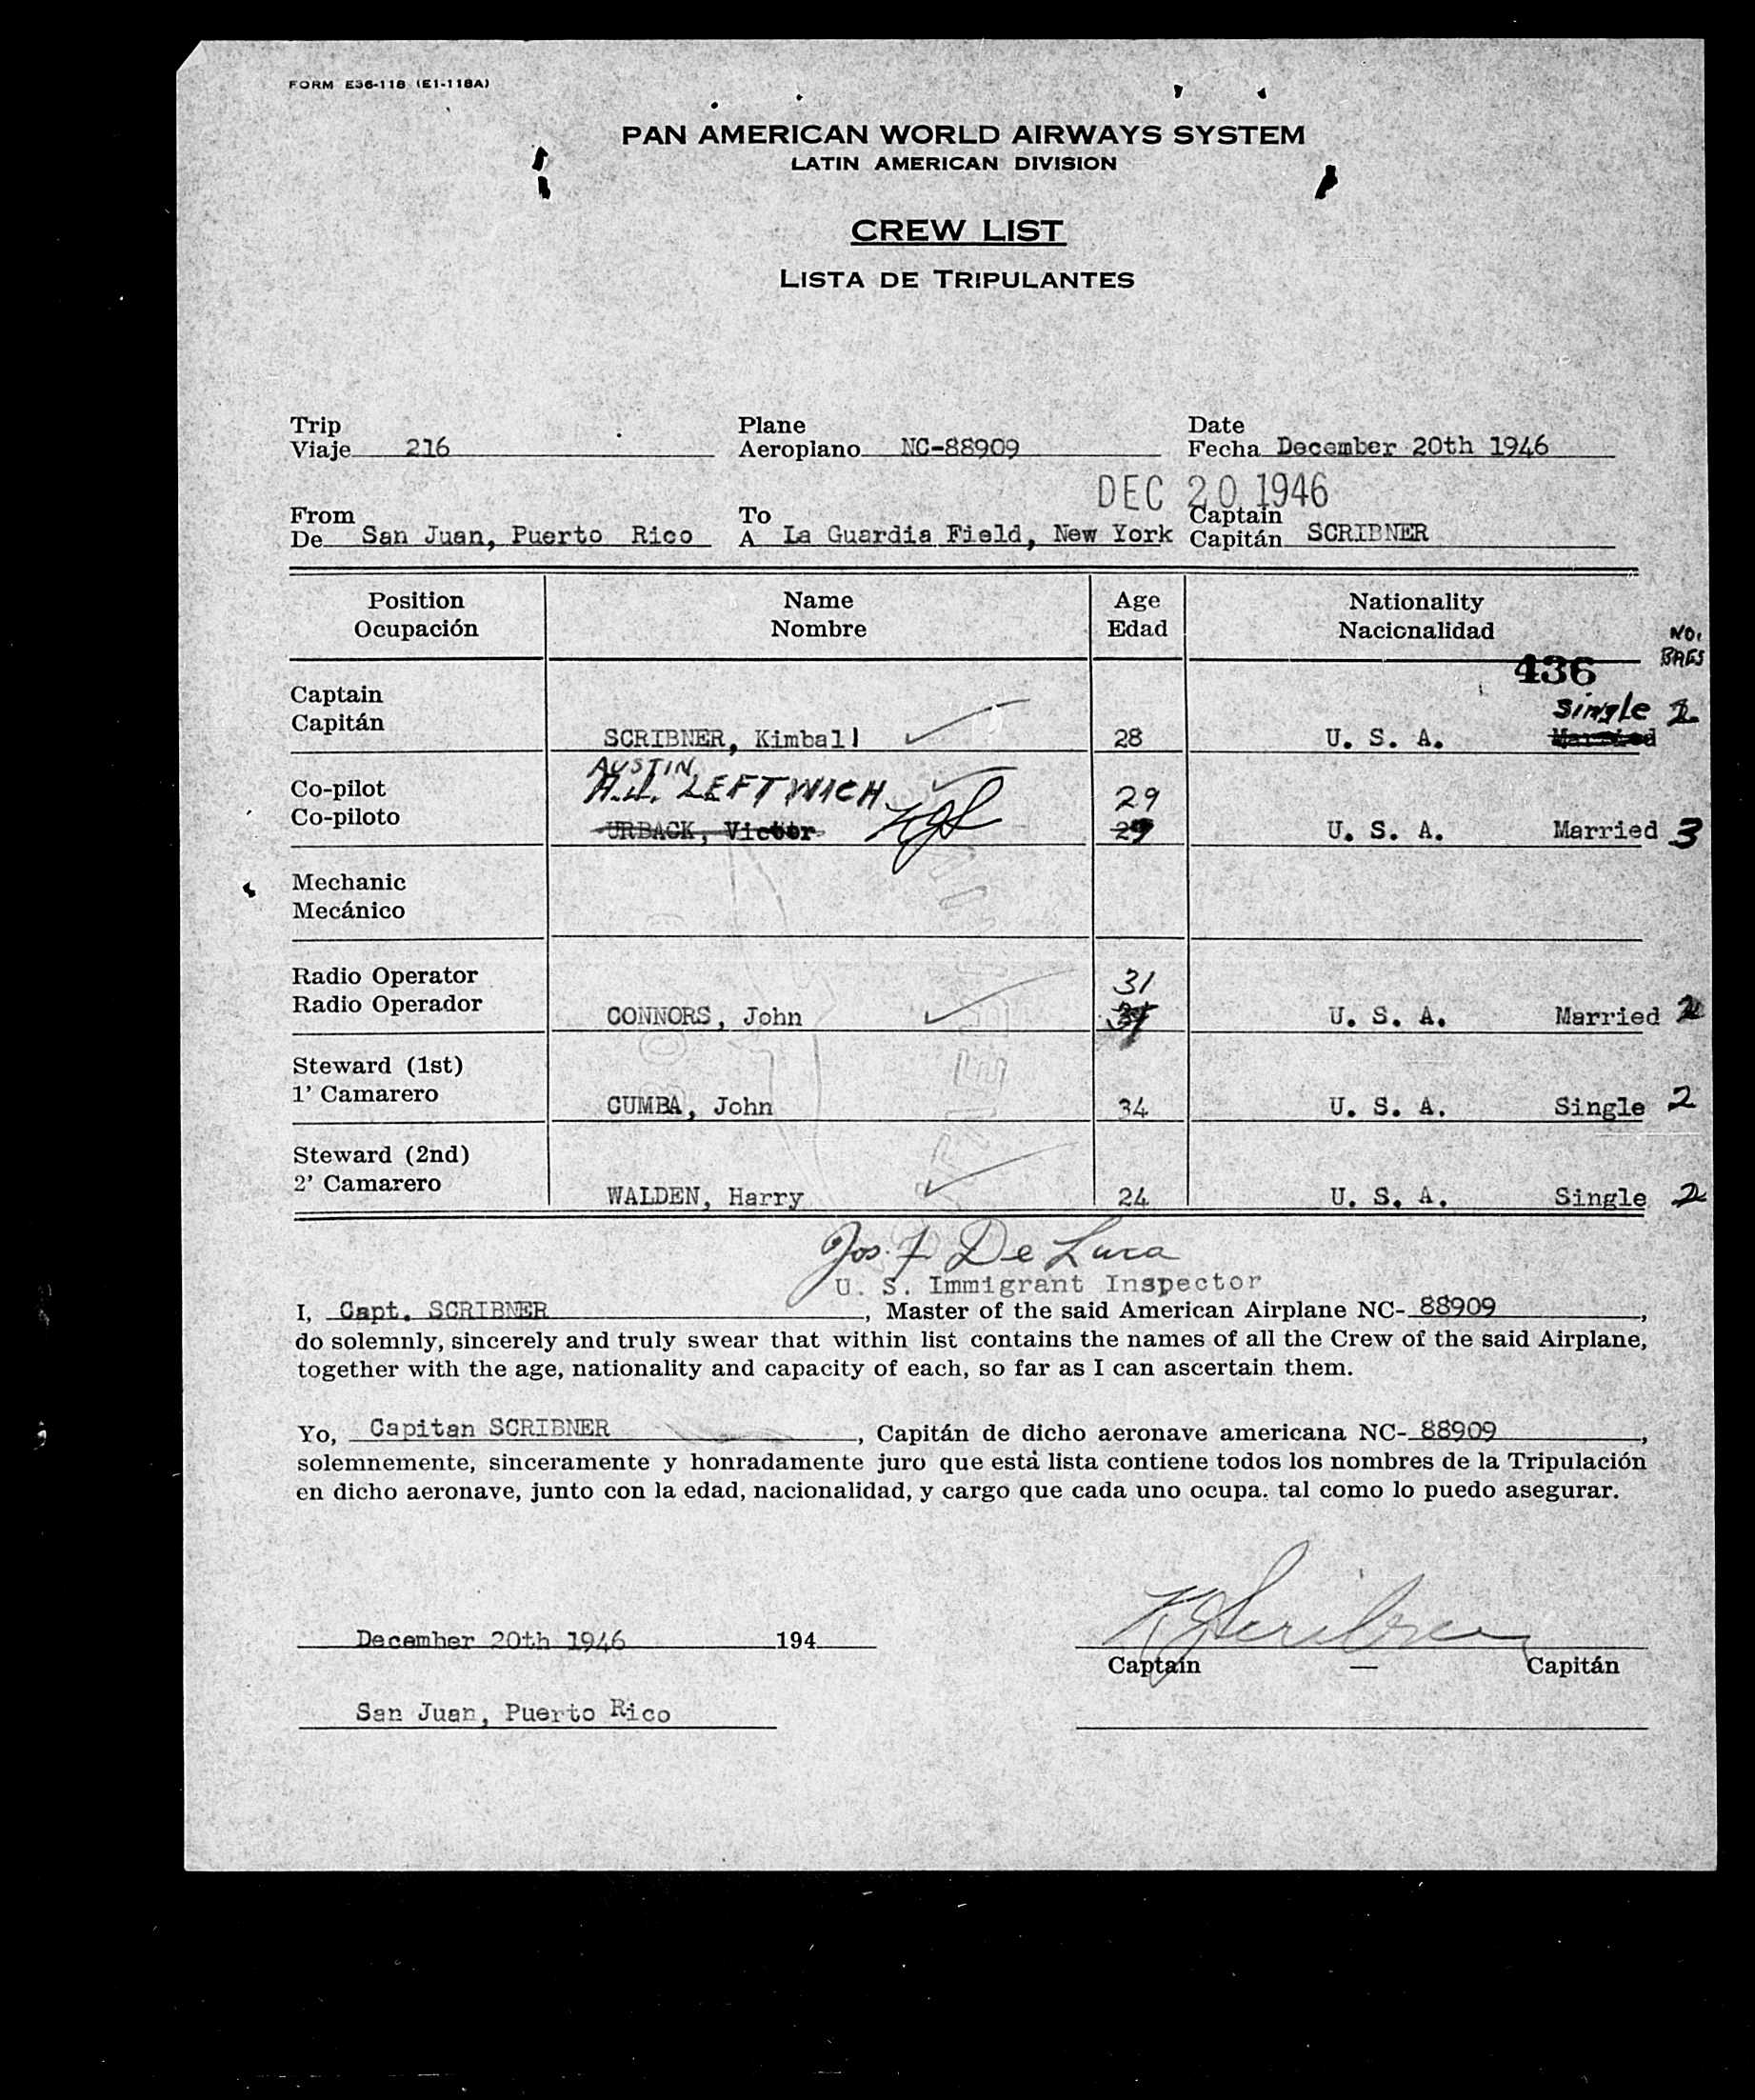 FORM E36-118 (E1-118A)
PAN AMERICAN WORLD AIRWAYS SYSTEM
LATIN AMERICAN DIVISION
CREW LIST
LISTA DE TRIPULANTES
Trip Plane Date
Viaje 216 Aeroplano NC-88909 Fecha December 20th 1946
DEC 20 1946
From To Captain
De San Juan, Puerto Rico A La Guardia Field, New York Capitán SCRIBNER
Position Name Age Nationality
Ocupación Nombre Edad Nacionalidad NO.
BAGS
436
Captain Single
Capitán SCRIBNER, Kimball 28 U. S. A. Married
AUSTIN
Co-pilot LEFTWICH 29
Co-piloto URBACK, Victor U. S. A. Married 3
Mechanic
Mecánico
Radio Operator 31
Radio Operador CONNORS, John U. S. A. Married 2
Steward (1st)
1' Camarero CUMBA, John 34 U. S. A. Single 2
Steward (2nd)
2' Camarero WALDEN, Harry 24 U. S. A. Single 2
Jos. F De Luca
U. S. Immigrant Inspector
I, Capt. SCRIBNER, Master of the said American Airplane NC- 88909,
do solemnly, sincerely and truly swear that within list contains the names of all the Crew of the said Airplane,
together with the age, nationality and capacity of each, so far as I can ascertain them.
Yo, Capitan SCRIBNER, Capitán de dicho aeronave americana NC- 88909,
solemnemente, sinceramente y honradamente juro que está lista contiene todos los nombres de la Tripulación
en dicho aeronave, junto con la edad, nacionalidad, y cargo que cada uno ocupa. tal como lo puedo asegurar.
K J Scribner
December 20th 1946 194
Captain — Capitán
San Juan, Puerto Rico